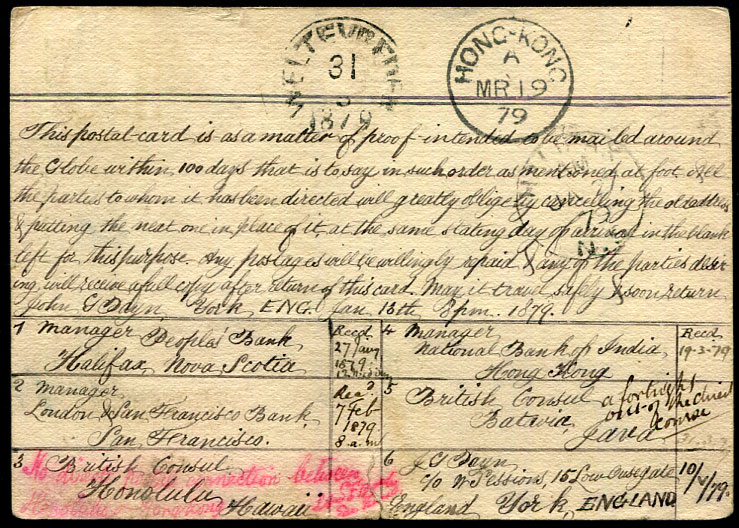 WELTEVREDEN
31
1879
HONG-KONG
A
MR 19
79
This postal card is as a matter of proof intended to be mailed around
the Globe within 100 days that is to say in such order as mentioned at foot. All
the parties to whom it has been directed will greatly oblige by cancelling the old address
& putting the next one in place of it, at the same stating day of arrival in the blank
left for this purpose. Any postages will be willingly repaid & any of the parties desir
ing will receive a full copy after return of this card. May it travel safely & soon return
John G Dayn York, ENG. Jan 13th 8 pm. 1879.
1 Manager People's Bank,
Halifax, Nova Scotia
Recd
27 Jany
1879
2 Manager
London & San Francisco Bank,
San Francisco.
Recd
7 Feb
1879
8 a.m
3 British Consul
Honolulu
Hawaii
No direct connection between
Honolulu Hongkong
4 Manager
National Bank of India,
Hong Kong
Recd
19-3-79
5 British Consul
Batavia
Java
a fortnight
out of the direct
course
6 J G Dayn
c/o W Sessions, 15 Low Ousegate
England York, ENGLAND
10/V/79.